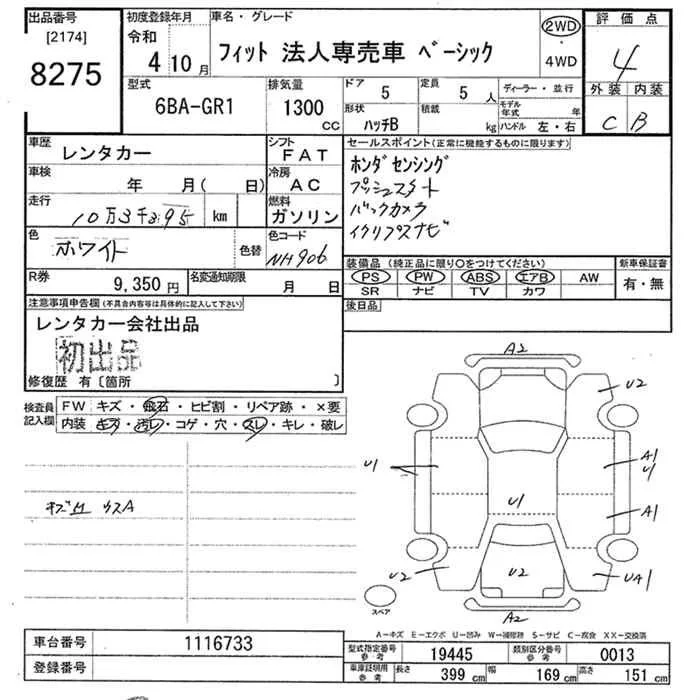 出品番号
[2174]
8275
初度登録年月
令和
4 10月
車名・グレード
フィット 法人専売車 ベーシック
2WD
・
4WD
評価点
4
外装 内装
C B
型式
6BA-GR1
排気量
1300
CC
ドア
5
形状
ハッチB
定員
5 人
積載
kg
ディーラー・並行
モデル年式 年
ハンドル 左・右
車歴
レンタカー
シフト
FAT
車検
年 月( 日)
冷房
AC
走行
10万3千295 km
燃料
ガソリン
色
ホワイト
色替
色コード
NH906
R券
9,350 円
名変通知期限
月 日
セールスポイント(正常に機能するものに限ります)
ホンダセンシング
プッシュスタート
バックカメラ
イクリプスナビ
装備品 (純正品に限り○をつけてください)
PS PW ABS エアB AW
SR ナビ TV カワ
新車保証書
有・無
後日品
注意事項申告欄(不具合内容等は具体的に記入して下さい)
レンタカー会社出品
初出品
修復歴 有〔箇所 〕
検査員記入欄
FW キズ・飛石・ヒビ割・リペア跡・×要
内装 キズ・汚レ・コゲ・穴・スレ・キレ・破レ
A2
U2
U1
A1
U1
U1
A1
U2
U2
UA1
A2
スペア
A-キズ E-エクボ U-凹み W-補修跡 S-サビ C-腐食 XX-交換済
車台番号
1116733
登録番号
型式指定番号
参考
19445
類別区分番号
参考
0013
車庫証明用
参考
長さ 399 cm 幅 169 cm 高さ 151 cm